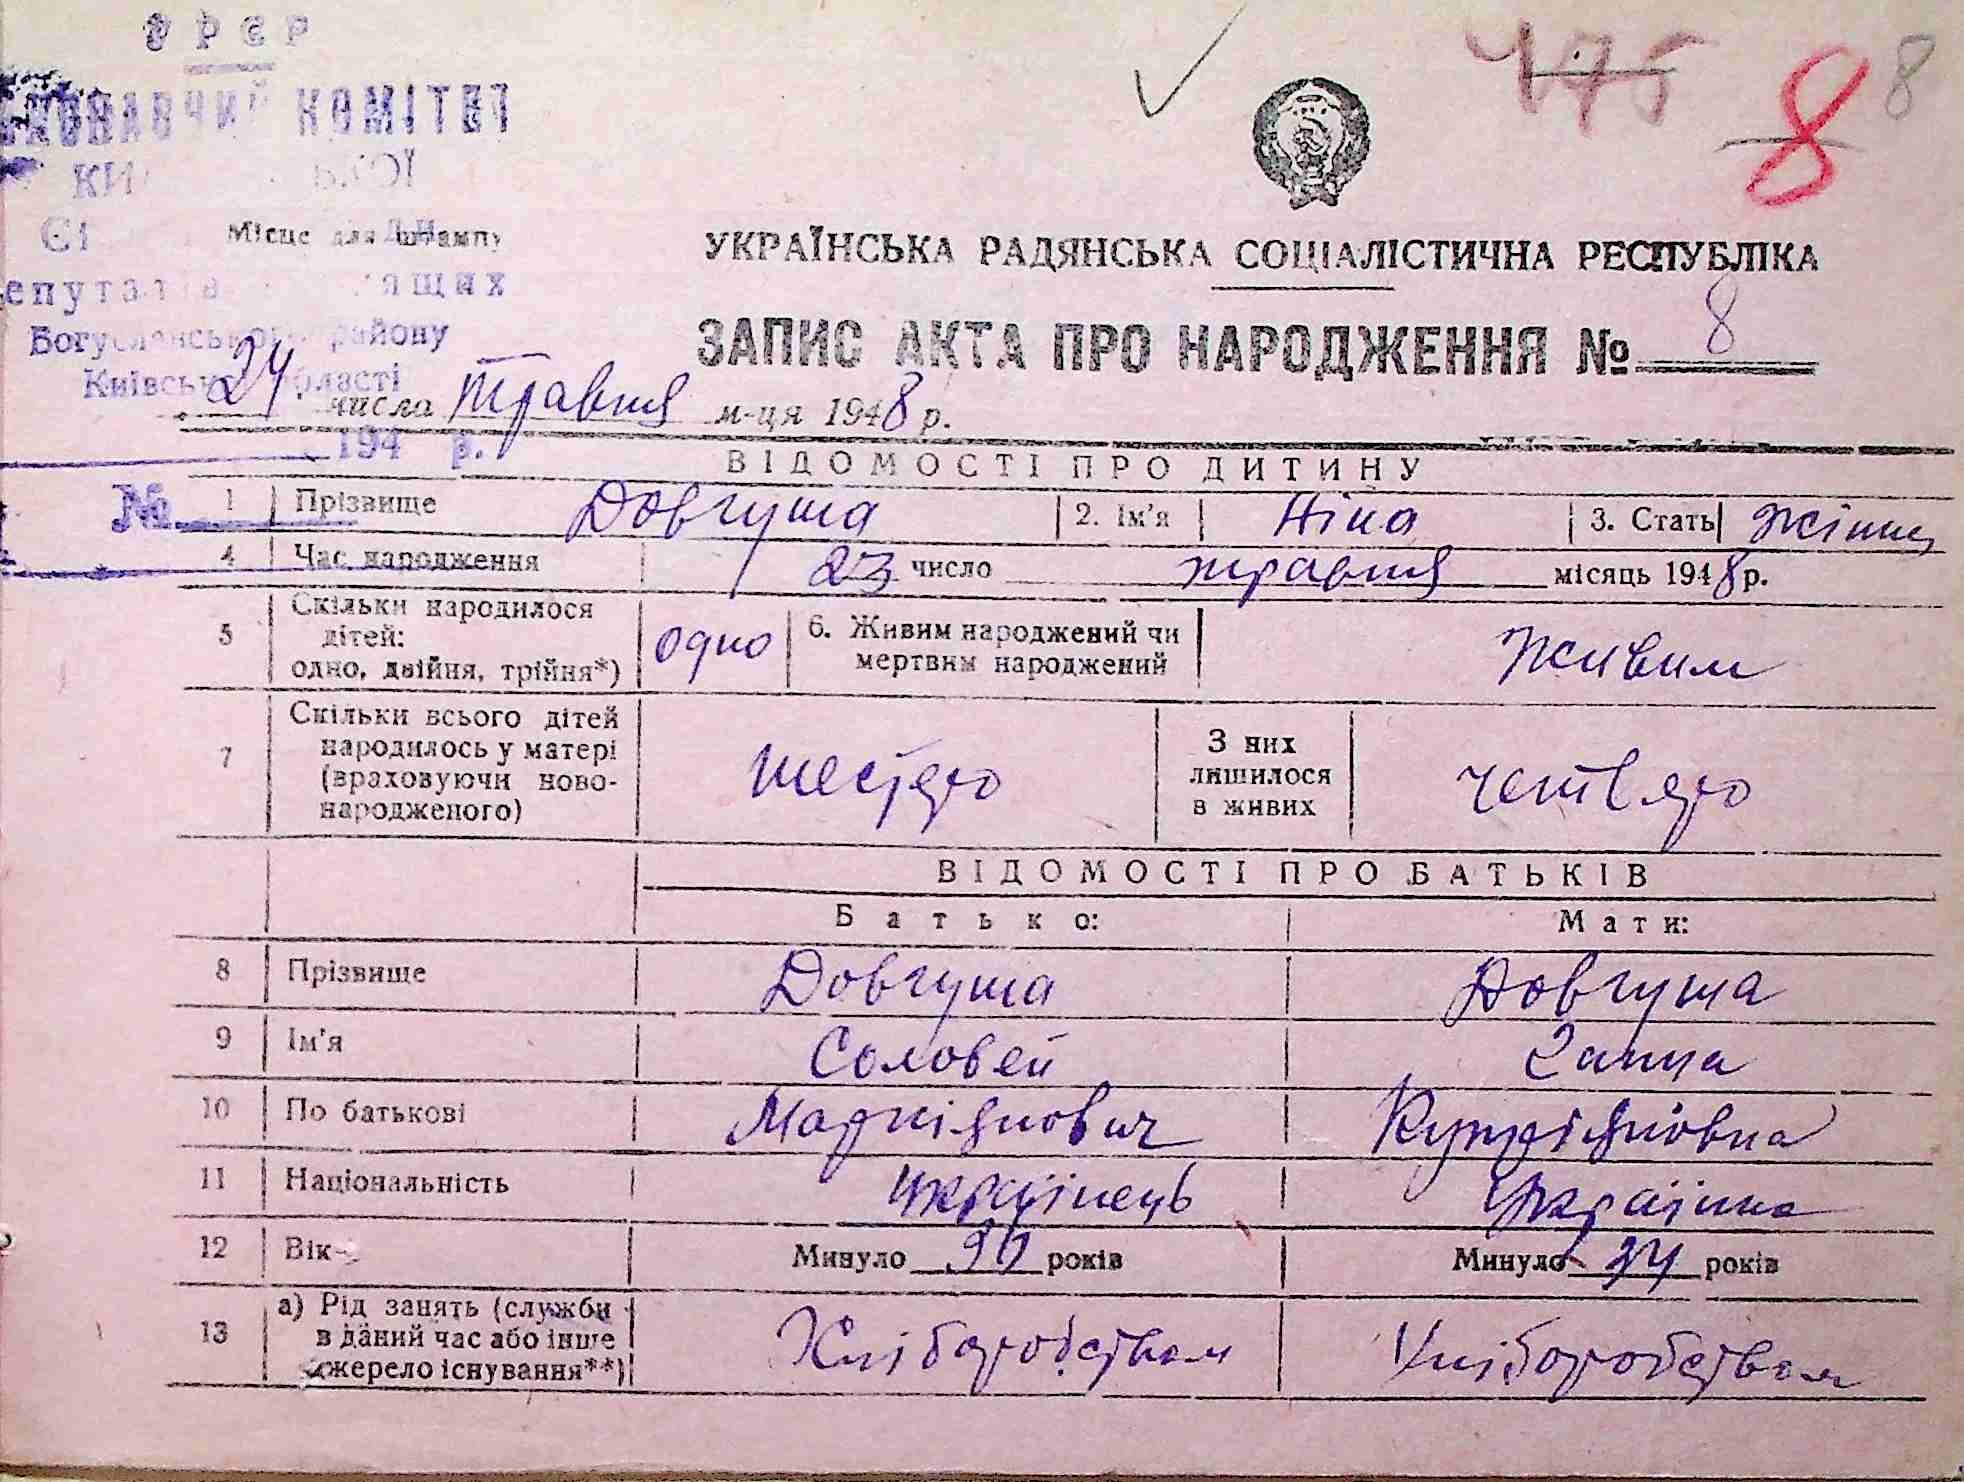 УРСР
475 8 8
КОМІТЕТ
Місце для штампу
УКРАЇНСЬКА РАДЯНСЬКА СОЦІАЛІСТИЧНА РЕСПУБЛІКА
Богуславського району
ЗАПИС АКТА ПРО НАРОДЖЕННЯ № 8
Київської області
24 числа травня м-ця 1948 р.
194 р.
ВІДОМОСТІ ПРО ДИТИНУ
№
1 Прізвище Довгуша 2. Ім'я Ніна 3. Стать жіноч
4 Час народження 23 число травня місяць 1948 р.
5 Скільки народилося дітей: одно, двійня, трійня*) одно 6. Живим народжений чи мертвим народжений Живим
7 Скільки всього дітей народилось у матері (враховуючи ново-народженого) шестеро З них лишилося в живих четверо
ВІДОМОСТІ ПРО БАТЬКІВ
Батько: Мати:
8 Прізвище Довгуша Довгуша
9 Ім'я Соловей Ганна
10 По батькові Маркіянович Купріянівна
11 Національність українець Українка
12 Вік Минуло років Минуло 34 років
13 а) Рід занять (служби в даний час або інше джерело існування**) Хліборобством Хліборобством